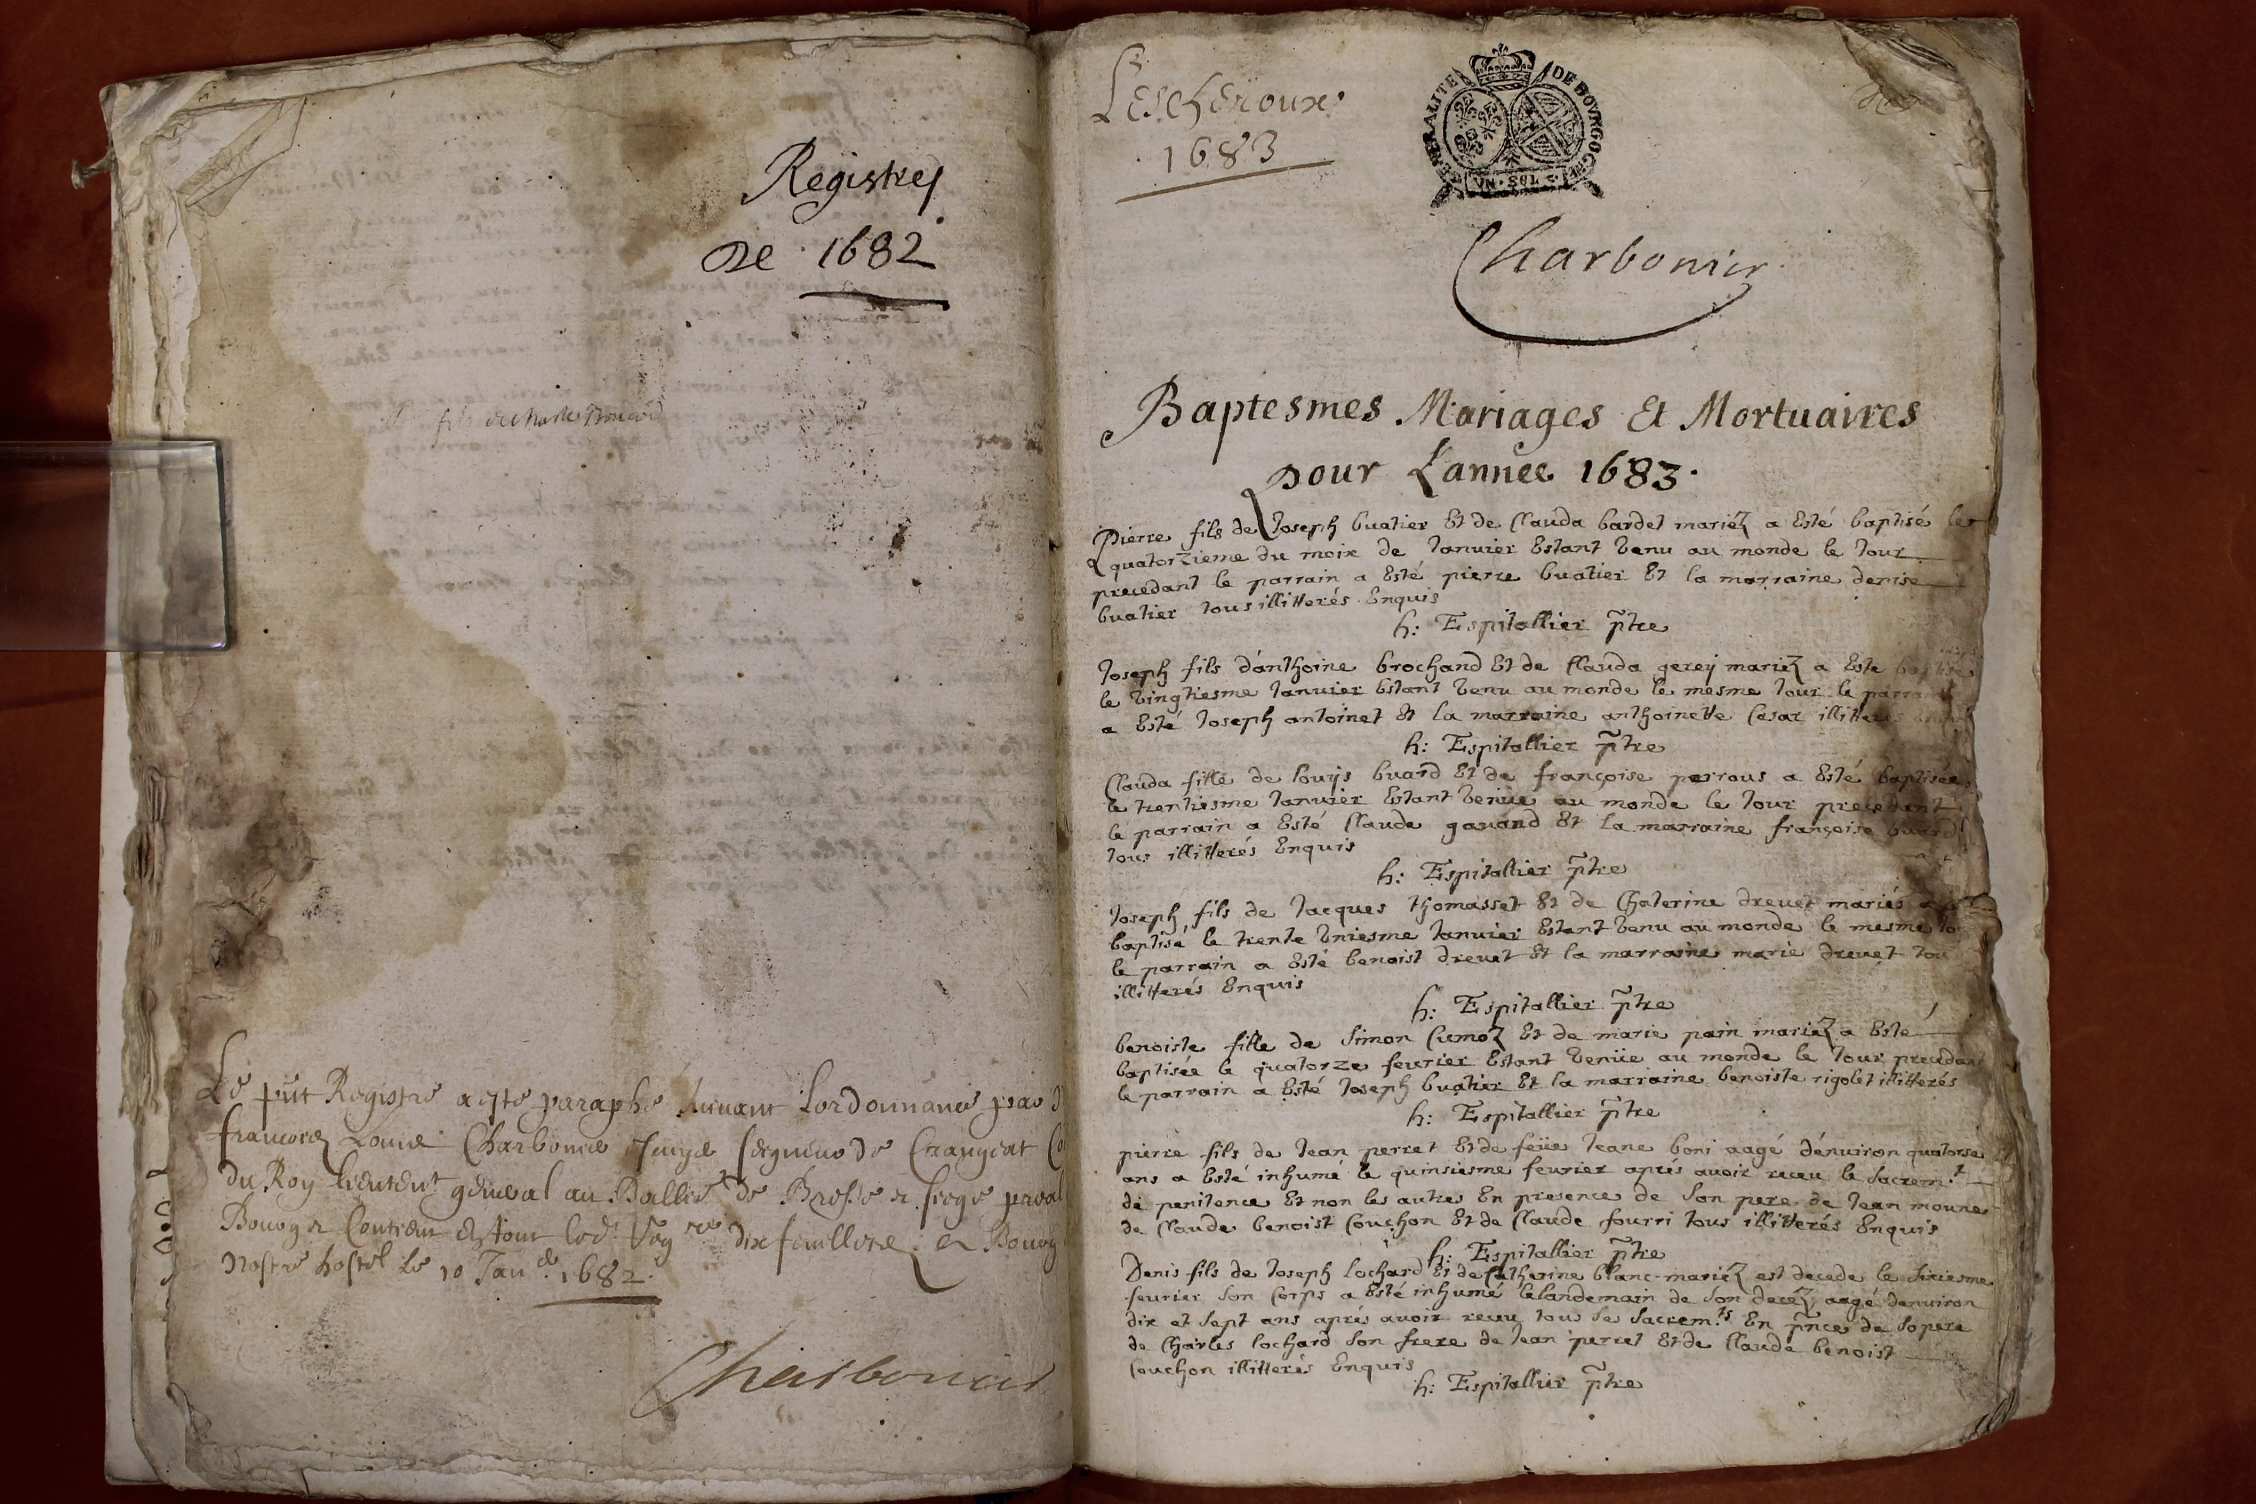 Registres
de 1682
fils de Charle
Le pnt Registre a este paraphé suivant Lordonnance par
francois Louis Charbonnier escuyer seigneur de Crangeat
du Roy Lieutent general au Balliage de Bresse et siege
Bourg Contient estant led. dix feuillets. a Bourg
nostre hostel le 10 Jan 1682.
Charbonier
Lescheroux
1683
GENERALITE DE BOVRGOGNE
VN SOL
Charbonier
Baptesmes Mariages Et Mortuaires
pour L'année 1683.
Pierre fils de Joseph buatier Et de Clauda bardet mariéz a Esté baptisé le
quatorzieme du moix de Janvier Estant venu au monde le Jour
precedant le parrain a Esté pierre buatier Et la marraine denise
buatier tous illitterés Enquis
h: Espitallier ptre
Joseph fils d'anthoine brochand Et de Clauda gerey mariéz a Este baptisé
le vingtiesme Janvier Estant venu au monde le mesme Jour le parrain
a Esté Joseph antoinet Et la marraine anthoinette Cesar illitterés
h: Espitallier ptre
Clauda fille de louys buard Et de françoise perrous a Esté baptisée
le trentiesme Janvier Estant venüe au monde le Jour precedant
le parrain a Esté Claude gauand Et la marraine françoise buard
tous illitterés Enquis
h: Espitallier ptre
Joseph fils de Jacques thomasset Et de Chaterine dreuet mariés a
baptisé le trente vniesme Janvier Estant venu au monde le mesme
le parrain a Esté benoist dreuet Et la marraine marie dreuet
illitterés Enquis
h: Espitallier ptre
benoiste fille de Simon Et de marie pain mariéz a Esté
baptisée le quatorze feurier Estant venüe au monde le Jour precedant
le parrain a Esté Joseph buatier Et la marraine benoiste rigolet illitterés
h: Espitallier ptre
pierre fils de Jean perret Et de feüe Jeane boni aagé d'énuiron quatorse
ans a Esté inhumé le quinsiesme feurier aprés avoir receu le Sacrem.t
de penitence Et non les autres En presence de Son pere de Jean
de Claude benoist Couchon Et de Claude fourri tous illitterés Enquis
h: Espitallier ptre
Denis fils de Joseph lochard Et de Catherine blanc mariéz est decede le Siziesme
feurier Son Corps a Esté inhumé le landemain de Son decéz aagé denuiron
dix et Sept ans aprés avoir receu tous Se Sacrem.ts En pnce de So pere
de Charles lochard Son frere de Jean perret Et de Claude benoist
Couchon illitterés Enquis
h: Espitallier ptre